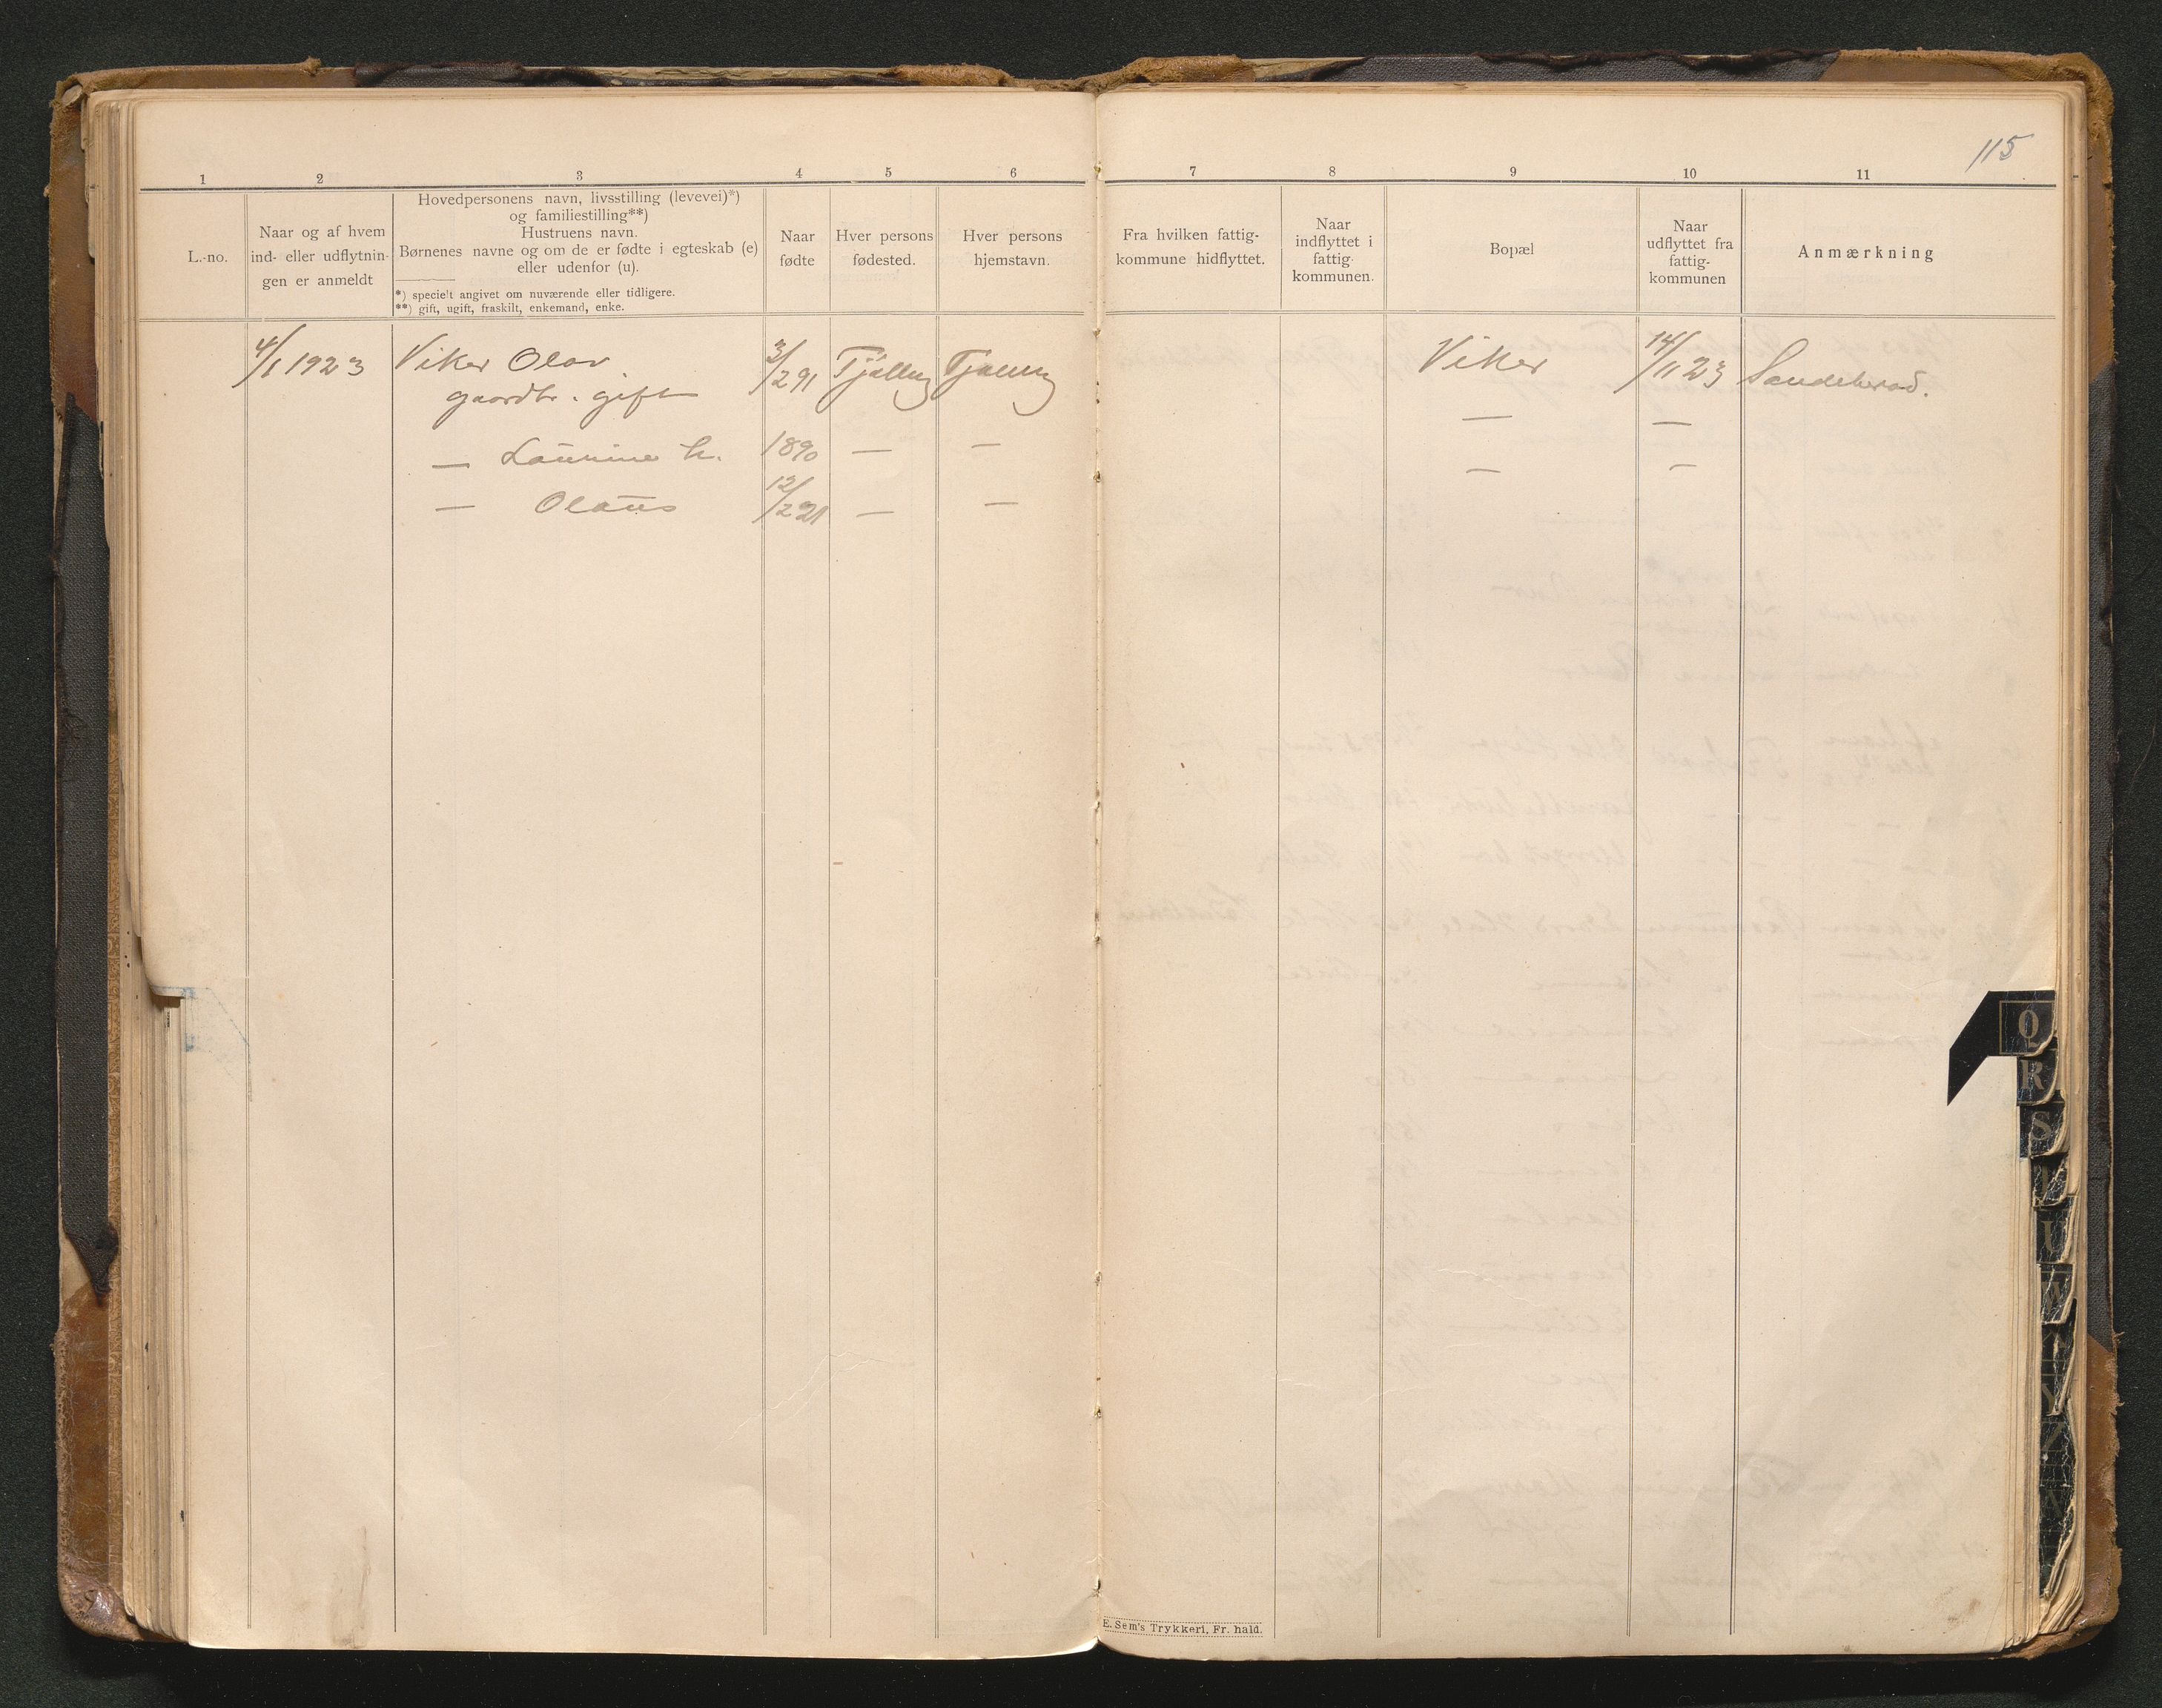 115
1 2 3 4 5 6 7 8 9 10 11
L.-no.
Naar og af hvem
ind- eller udflytnin-
gen er anmeldt
Hovedpersonens navn, livsstilling (levevei)*)
og familiestilling**)
Hustruens navn.
Børnenes navne og om de er fødte i egteskab (e)
eller udenfor (u).
*) specielt angivet om nuværende eller tidligere.
**) gift, ugift, fraskilt, enkemand, enke.
Naar
fødte
Hver persons
fødested.
Hver persons
hjemstavn.
Fra hvilken fattig-
kommune hidflyttet.
Naar
indflyttet i
fattig
kommunen.
Bopæl
Naar
udflyttet fra
fattig-
kommunen
Anmærkning
4/1 1923 Viker Olav 3/2 91 Tjølling Tjølling Viker 14/11 23 Sandeherad.
gaardbr. gift — —
— Laurine h. 1890 — — — —
— Olaus 12/2 21 — —
Q
R
S
U
W
Y
E. Sem's Trykkeri, Fr. hald.